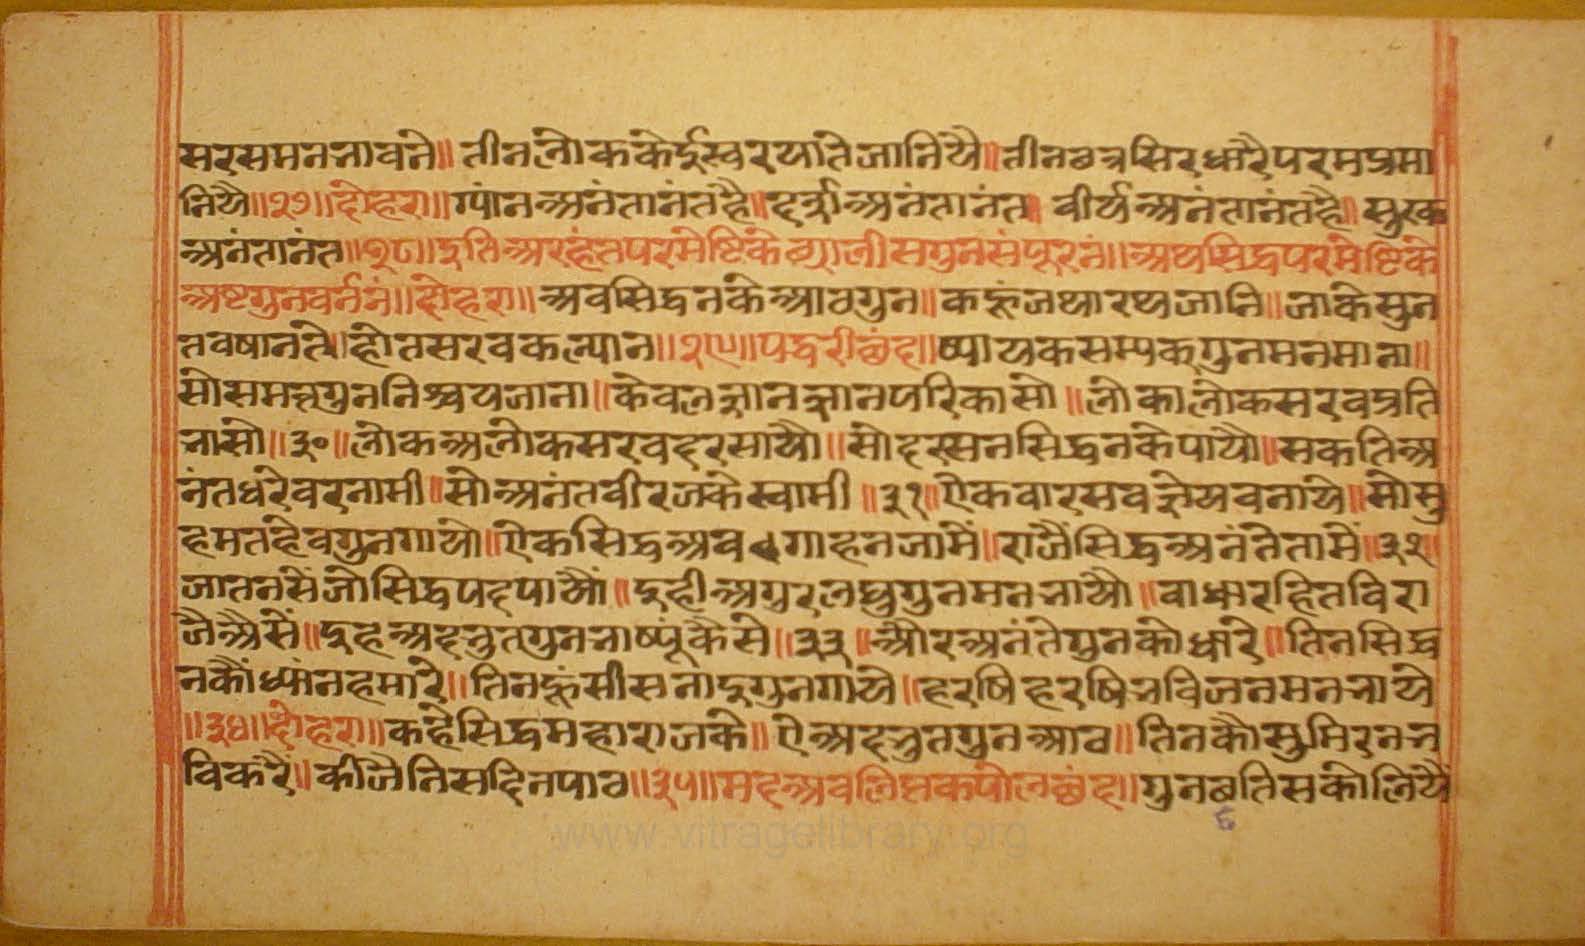 सरसमनभावने॥ तीनलोककेईस्वरयांतेजानियै॥तीनछत्रसिरधारैपरमप्रमा
नियै॥२७॥दोहरा॥ग्यांनअनंतानंतहै॥दर्शअनंतानंत॥ वीर्यअनंतानंतहै॥सुख
अनंतानंत॥२८॥इतिअरहंतपरमेष्टिकेछ्यालीसगुनसंपूरनं॥अथसिद्धपरमेष्टिके
अष्टगुनवर्ननं॥दोहरा॥अवसिद्धनकेआठगुन॥कहूंजथारथजानि॥जाकेसुन
तवषानते॥होतसरवकल्यान॥२९॥पद्धरीछंद॥ष्यायकसम्यक्गुनमनमाना॥
सोसमत्तगुननिश्चयजाना॥केवलज्ञानज्ञानपरिकासो॥लोकालोकसरवप्रति
भासो॥३०॥लोकअलोकसरवदरसायौ॥सोदरसनसिद्धनकेपायौ॥सकतिअ
नंतधरेवरनामी॥सोअनंतवीरजकेस्वामी॥३१॥ऐकवारसवज्ञेयवनाये॥सोसु
हमतहैवगुनगायो॥ऐकसिद्धअवगाहनजामें॥राजैंसिद्धअनंतेतामें॥३२॥
जातनसेंजोसिद्धपदपायौं॥दुहीअगुरलघुगुनमनभायौ॥वाधारहितविरा
जैअैसें॥दुहअदभुतगुनभाष्यूंकैसे॥३३॥औरअनंतेगुनकोधारे॥तिनसिद्ध
नकौंध्यांनहमारे॥तिनहूंसीसनादुगुनगाये॥हरषिहरषिभविजनमनभाये
॥३४॥दोहरा॥कहेसिद्धमहाराजके॥ऐअदभुतगुनआठ॥तिनकौसुमिरनभ
विकरै॥कीजैनिसदिनपाठ॥३५॥मदअवलिप्तकपोलछंद॥गुनछतिसकोलियै
६
www.vitragelibrary.org